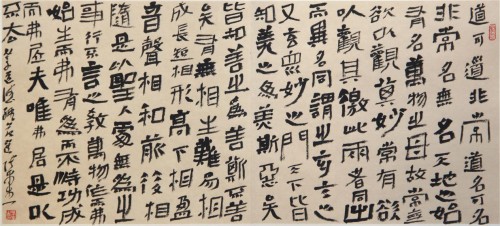 道可道非常道名可名
非常名無名天地之始
有名萬物之母故常無
欲以觀其妙常有欲
以觀其徼此兩者同出
而異名同謂之玄玄之
又玄眾妙之門天下皆
知美之為美斯惡矣
皆知善之為善斯不善
矣有無相生難易相
成長短相形高下相盈
音聲相和前後相
隨是以聖人處無為之
事行不言之教萬物作而弗
始生而弗有為而不恃功成
而弗居夫唯弗居是以
不去